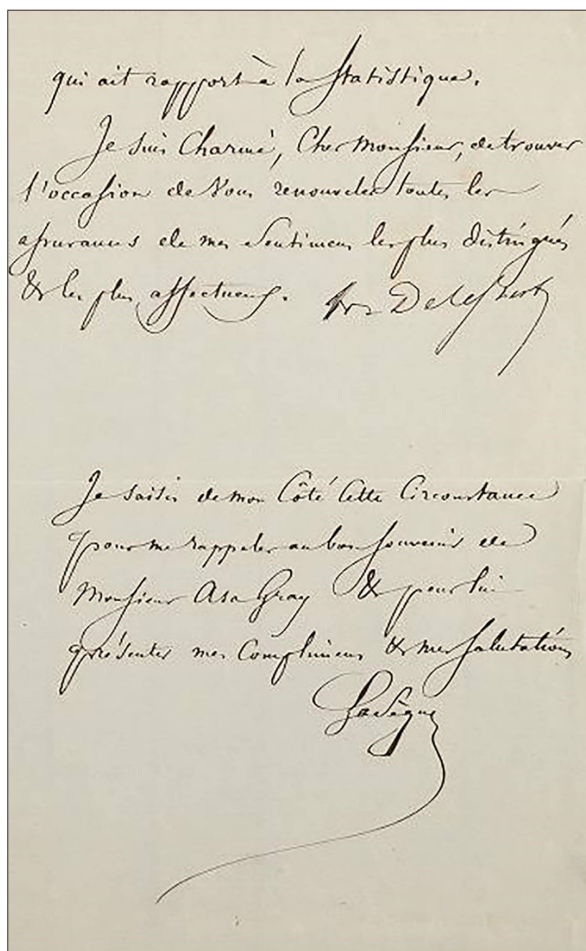 qui ait rapport à la Statistique.
Je suis Charmé, Cher Monsieur, de trouver
l'occasion de Vous renouveler toutes les
assurances de mes Sentimens les plus distingués
& les plus affectueux. Delessert
Je saisis de mon Côté Cette Circonstance
pour me rappeler au bon Souvenir de
Monsieur Asa Gray & pour lui
présenter mes Complimens & mes Salutations
Lasègue